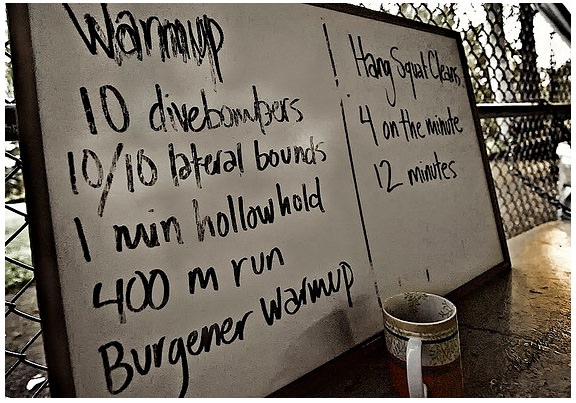 Warmup
10 divebombers
10/10 lateral bounds
1 min hollow hold
400 m run
Burgener Warmup
Hang Squat Cleans
4 on the minute
12 minutes